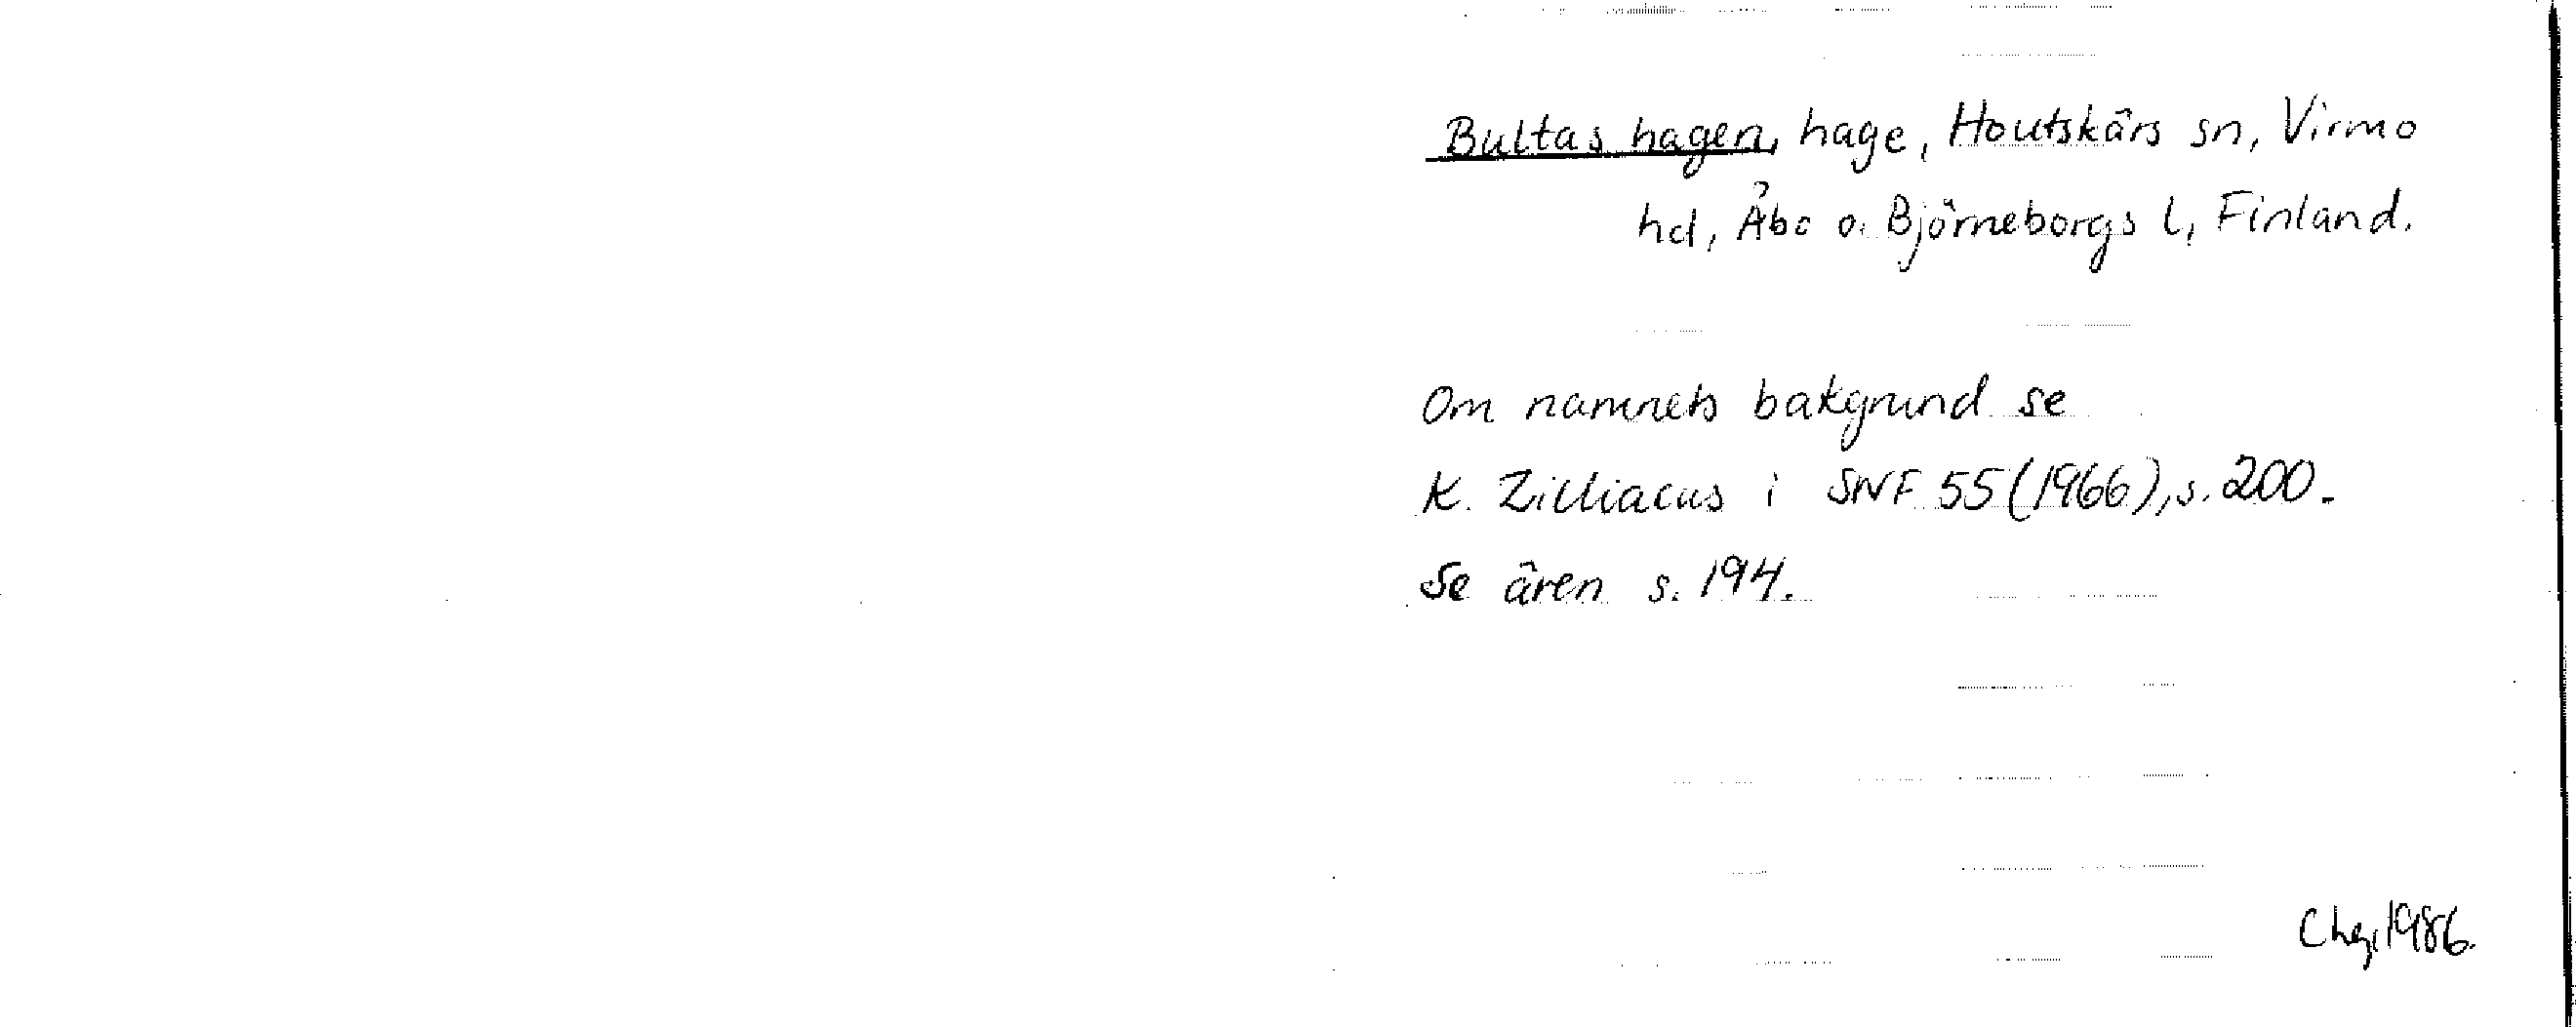 Bultas hagen, hage, Houtskärs sn, Virmo
hd, Åbo o. Björneborgs l, Finland.
Om namnets bakgrund se
K. Zilliacus i SNF 55 (1966), s. 200.
Se även s. 194.
1986.